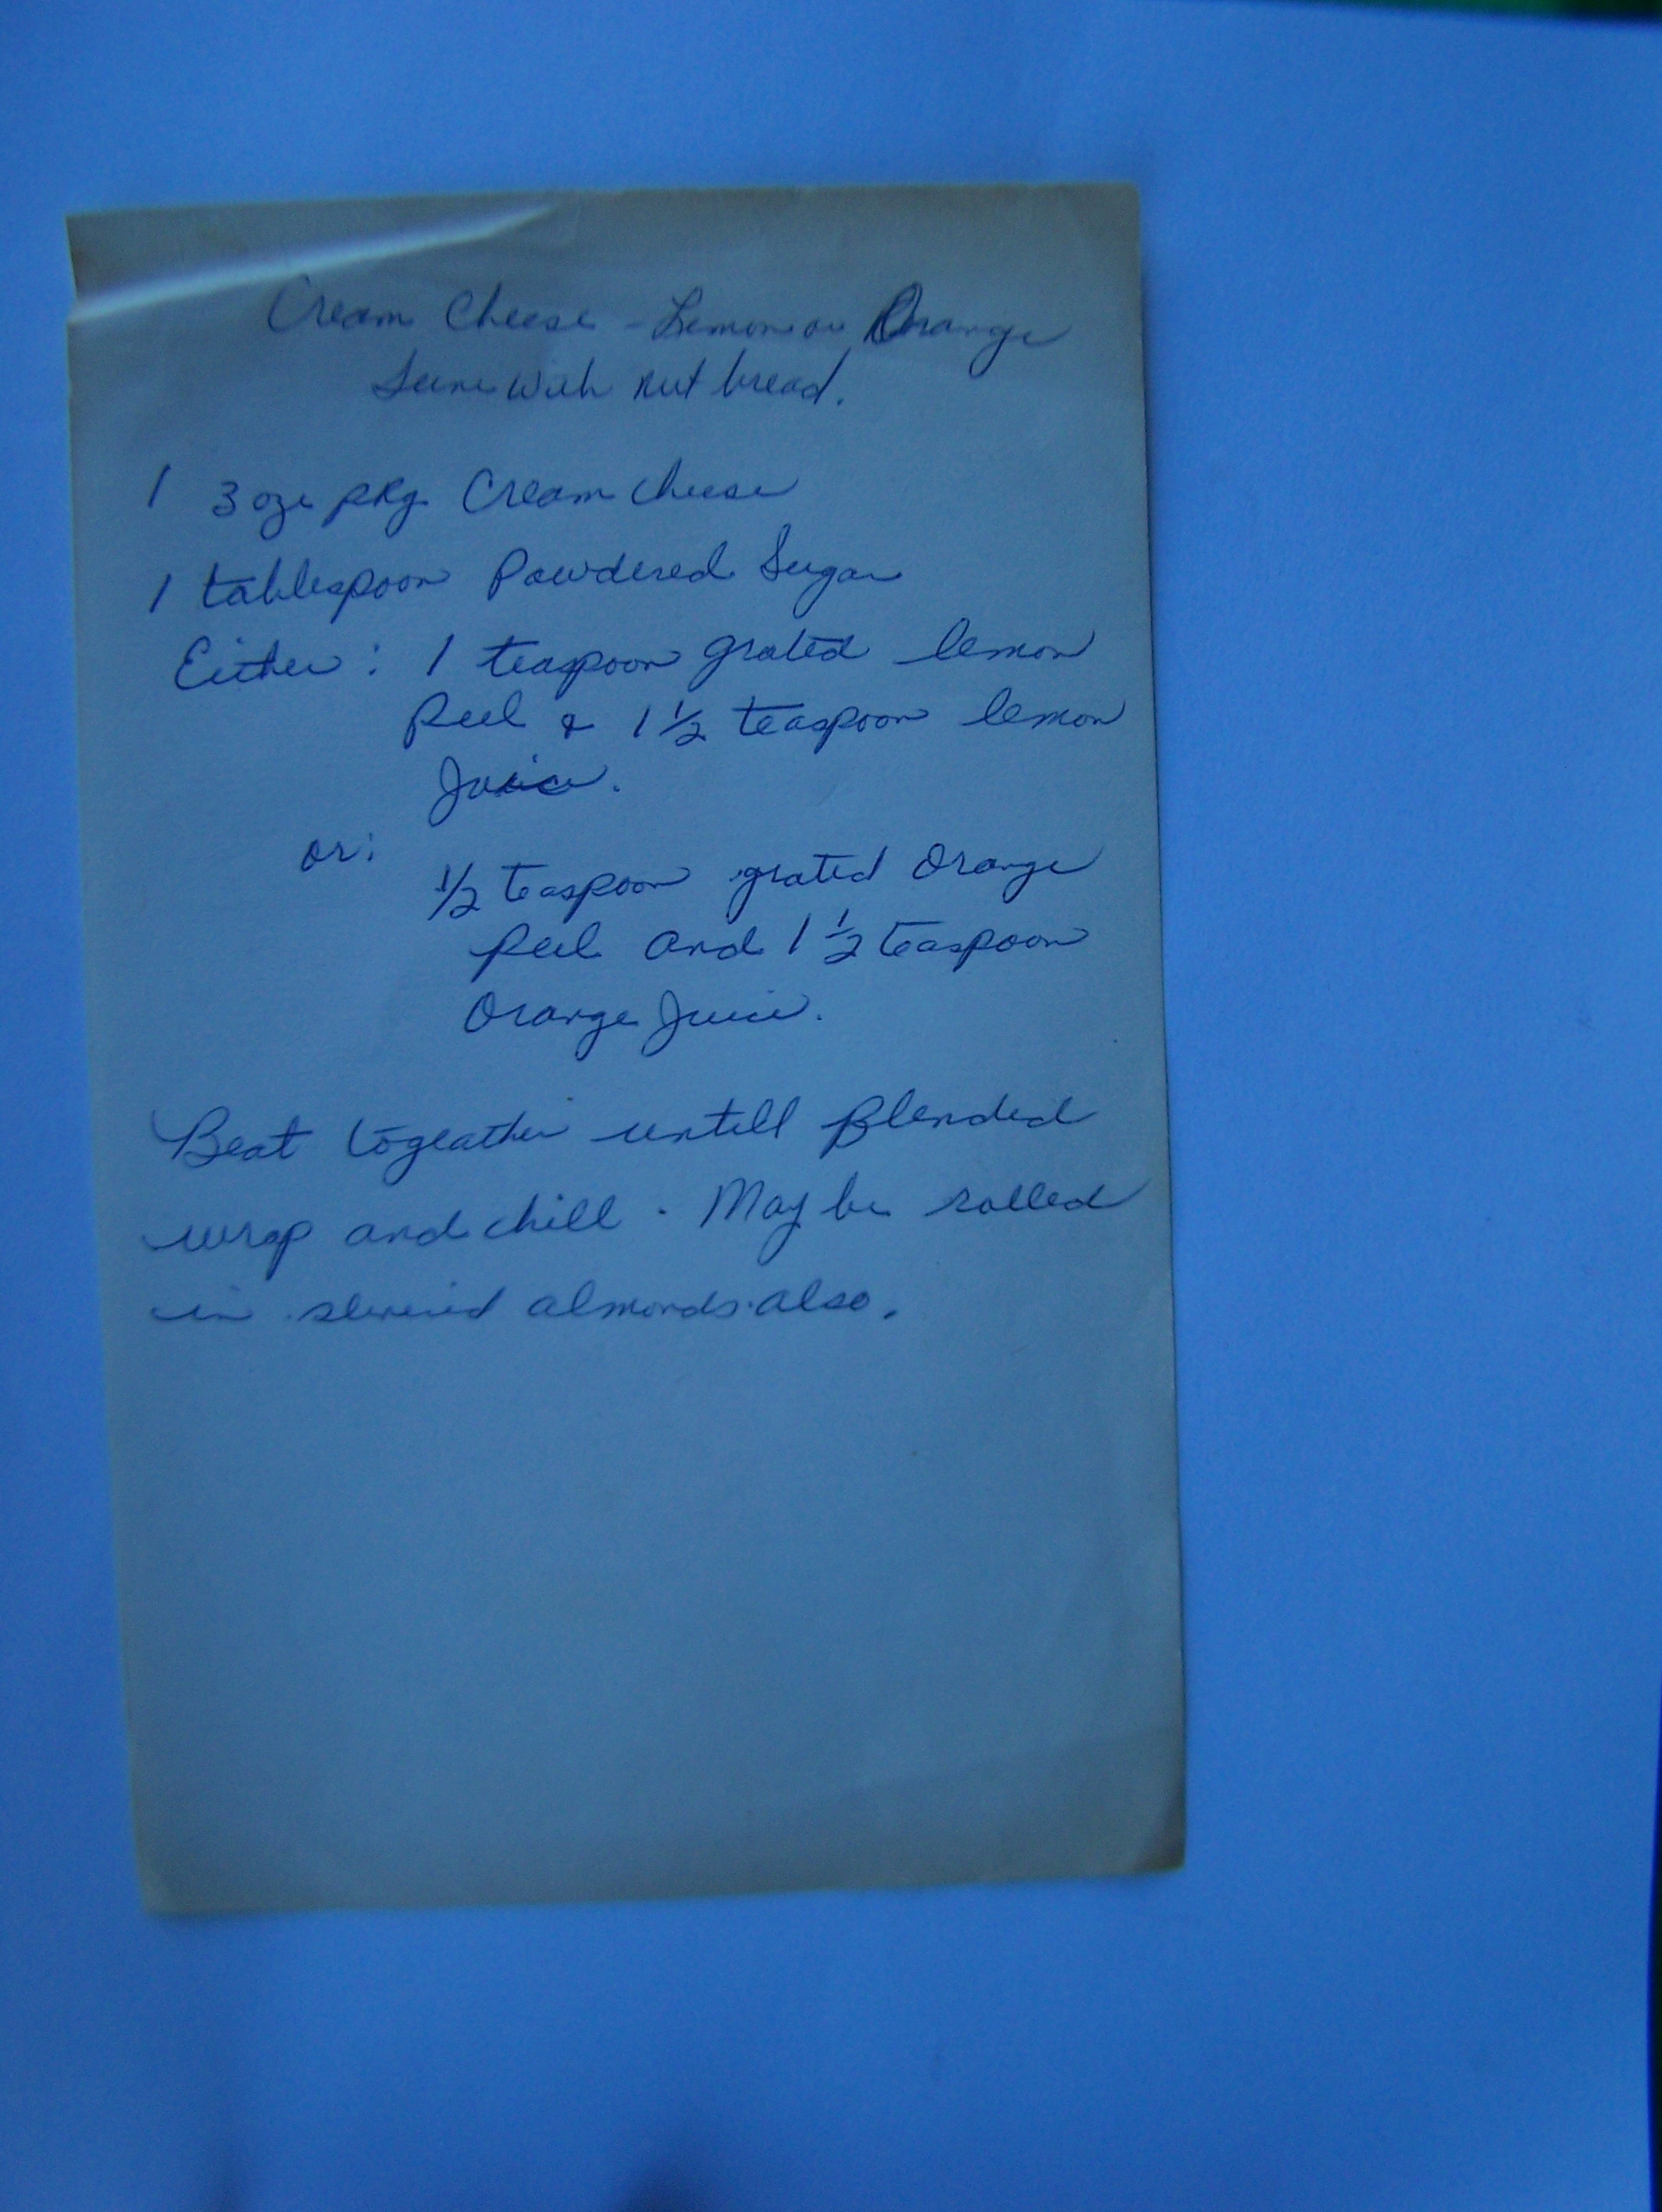 Cream Cheese - Lemon or Orange
Serve with nut bread.
1 3 oz. pkg. Cream cheese
1 tablespoon Powdered Sugar
Either: 1 teaspoon grated lemon
peel & 1 1/2 teaspoon lemon
Juice.
or:
1/2 teaspoon grated Orange
peel and 1 1/2 teaspoon
Orange Juice.
Beat togeather untill Blended
wrap and chill. May be rolled
in slivered almonds also.